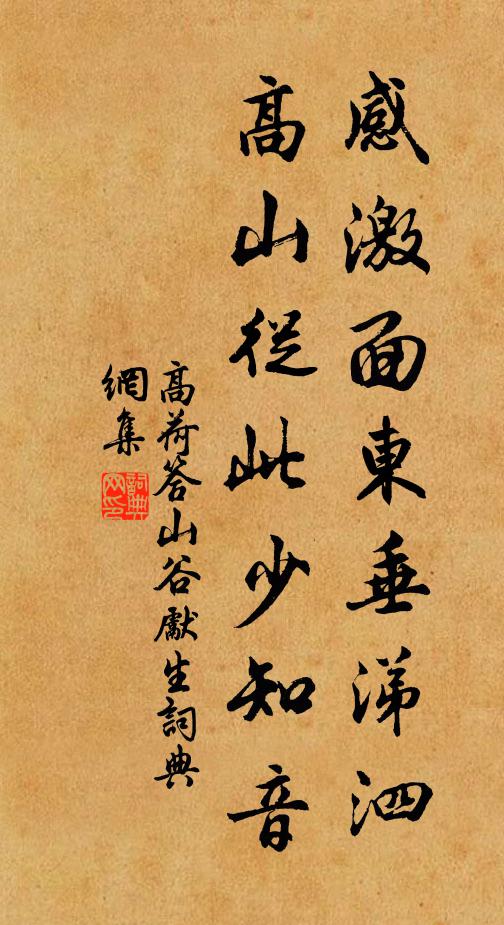 感激面東垂涕泗
高山從此少知音
高荷答山谷獻生詞典
網集
詞典
网印